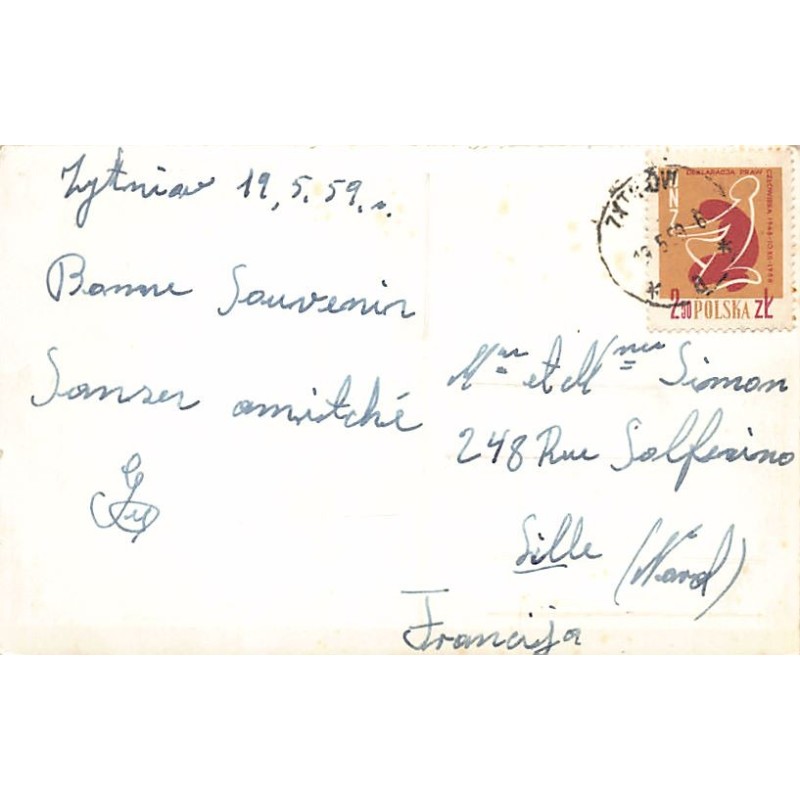 Żytniów 19.5.59.r.
Bonne Souvenir
Sanser amitché
DEKLARACJA PRAW
CZŁOWIEKA 1948·10·XII·1958
ONZ
2.50 POLSKA ZŁ
ŻYTNIÓW
19.5.59-6
Mr et Mme Simon
248 Rue Solferino
Lille (Nord)
Francija